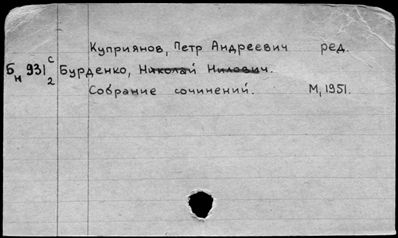 Куприянов, Петр Андреевич ред.
Бн 931 с/2 Бурденко, Николай Нилович.
Собрание сочинений. М, 1951.